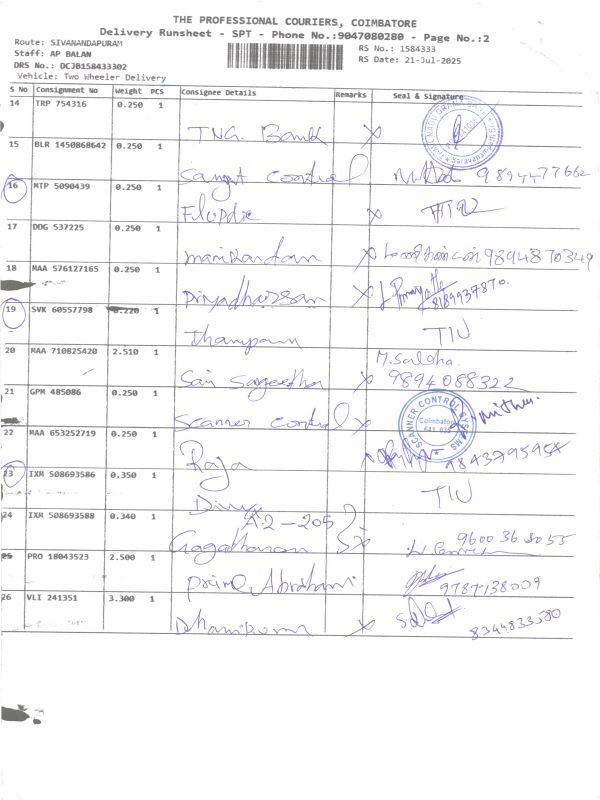 THE PROFESSIONAL COURIERS, COIMBATORE
Delivery Runsheet - SPT - Phone No.:9047080280 - Page No.:2
Route: SIVANANDAPURAM
RS No.: 1584333
Staff: AP BALAN
RS Date: 21-Jul-2025
DRS No.: DCJB158433302
Vehicle: Two Wheeler Delivery
S No Consignment No Weight PCS Consignee Details Remarks Seal & Signature
14 TRP 754316 0.250 1
TNG. Bank x
15 BLR 1450868642 0.250 1
Sangit control 9894477662
16 MTP 5090439 0.250 1
x
17 DDG 537225 0.250 1
manikandan x மணிகண்டன் 9894870349
18 MAA 576127165 0.250 1
Priyadharssan x 8189937870.
19 SVK 60557798 0.220 1
Thampam TIU
20 MAA 710825420 2.510 1
M. Saldha
Sai Sangeetha x 9894088322
21 GPM 485086 0.250 1
Scanner control x
SCANNER CONTROL SYSTEMS
Coimbatore
641 035
22 MAA 653252719 0.250 1
Raja 984379595x
23 IXM 508693586 0.350 1
Divya TIU
24 IXM 508693588 0.340 1
A2-205
9600368055
25 PRO 18043523 2.500 1
Prime Abraham 9787138009
26 VLI 241351 3.300 1
x 8344833580